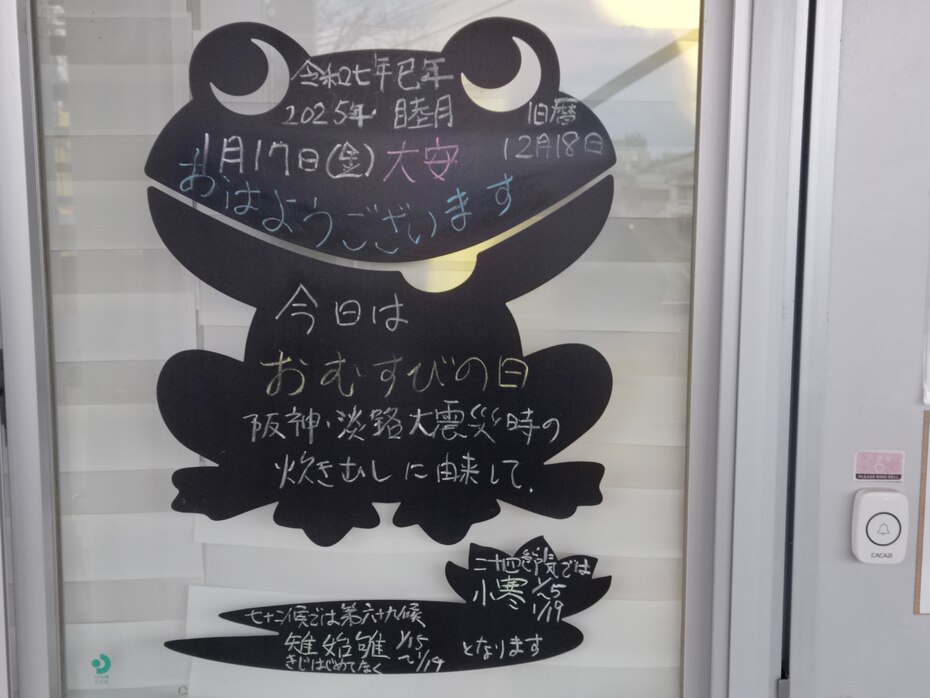 令和七年巳年
2025年 睦月
旧暦
12月18日
1月17日(金)大安
おはようございます
今日は
おむすびの日
阪神・淡路大震災時の
炊きむしに由来して、
二十四節気では
小寒 1/5
1/19
七十二候では第六十九候
雉始雊 1/15
〜1/19
きじはじめてなく
となります
PLEASE RING BELL
CACAZI